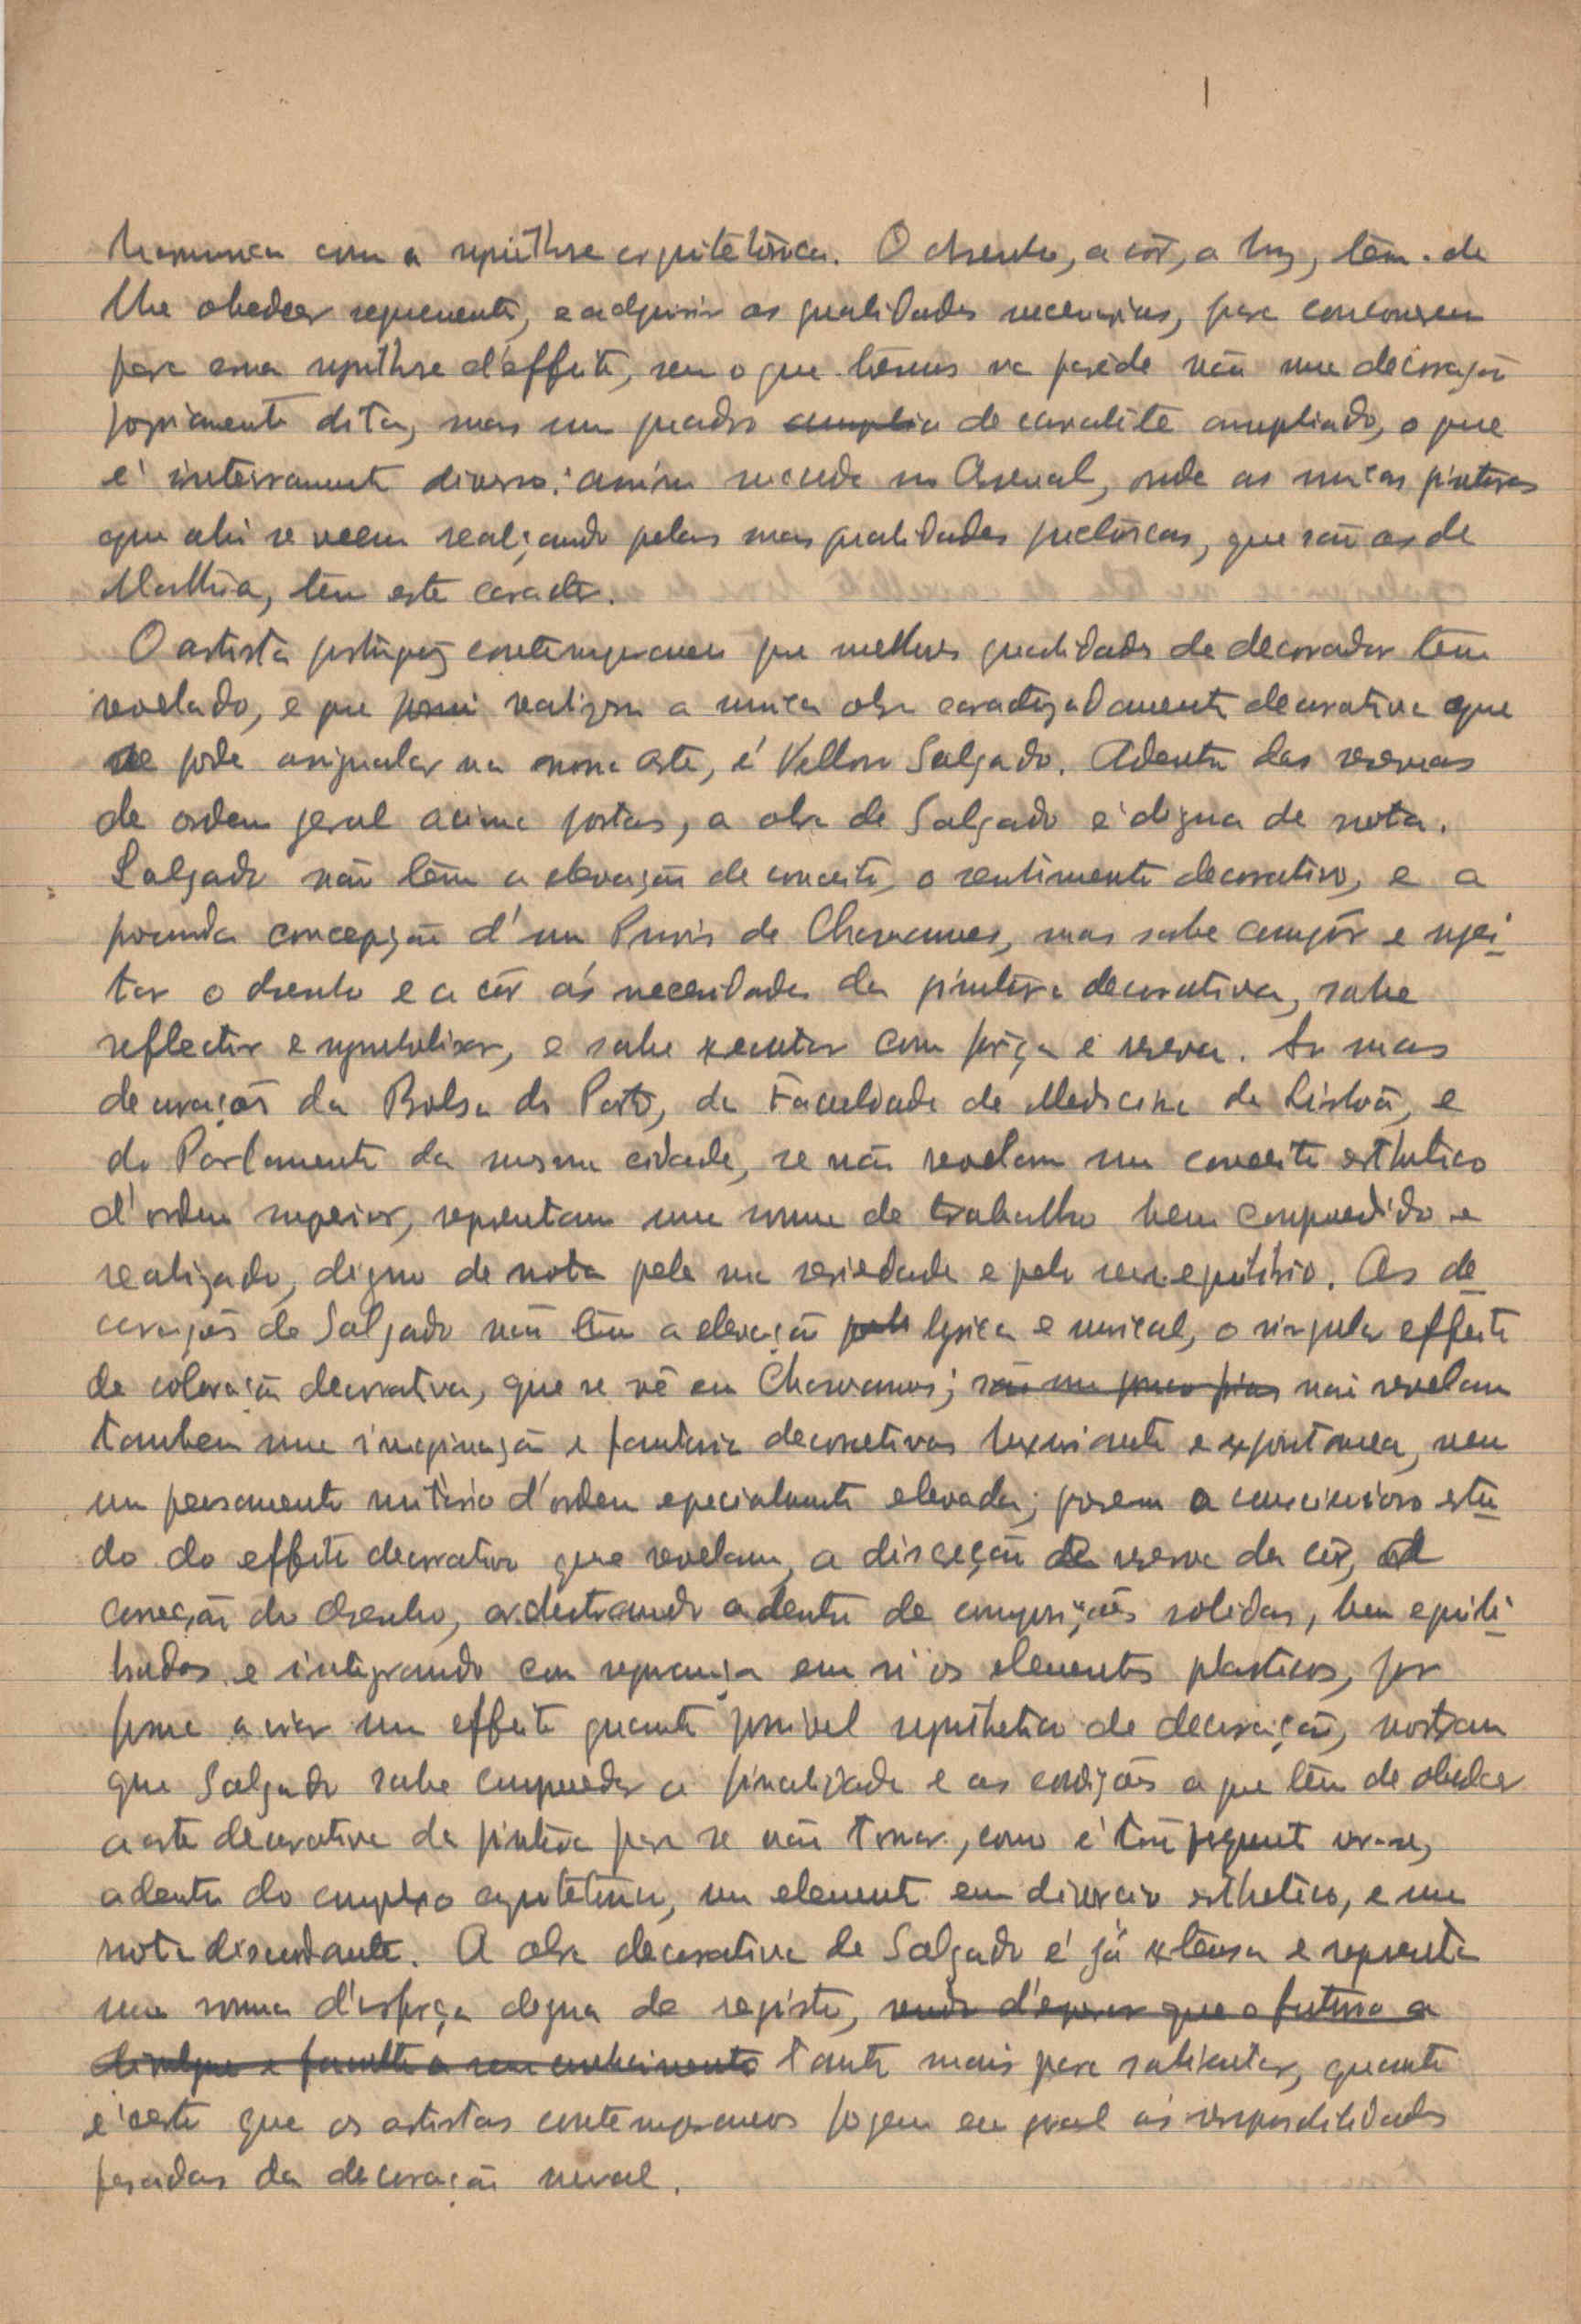 harmonia com a synthese arquitetónica. O desenho, a côr, a luz, têm de
lhe obedecer sequencialmente, e adquirir as qualidades necessarias, para concorrerem
para essa synthese d'effeito, sem o que têmos na parêde não uma decoração
propriamente dita, mas um quadro amplia de cavalête ampliado, o que
é inteiramente diverso: assim succede no Arsenal, onde as unicas pinturas
que ahi se veem realçando pelas suas qualidades pictóricas, que são as de
Malhôa, têm este caracter.
O artista portuguêz contemporaneo que melhores qualidades de decorador tem
revelado, e que realizou a unica obra caracterizadamente decorativa que
se pode assignalar na nossa arte, é Velloso Salgado. Adentro das reservas
de ordem geral acima postas, a obra de Salgado é digna de nota.
Salgado não têm a elevação de conceito, o sentimento decorativo, e a
profunda concepção d'um Puvis de Chavannes, mas sabe compôr e sujei-
tar o desenho e a côr ás necessidades da pintura decorativa, sabe
reflectir e symbolisar, e sabe executar com força e reserva. As suas
decorações da Bolsa do Porto, da Faculdade de Medicina de Lisboa, e
do Parlamento da mesma cidade, se não revelam um conceito esthetico
d'ordem superior, representam uma somma de trabalho bem comprehendido e
realizado, digno de nota pela sua seriedade e pelo seu equilibrio. As de-
corações de Salgado não têm a elevação lyrica e musical, o singular effeito
de coloração decorativa, que se vê em Chavannes; são um pouco frias não revelam
tambem uma imaginação e fantasia decorativas luxuriante e expontanea, nem
um pensamento unitário d'ordem especialmente elevada; porem o consciencioso estu-
do do effeito decorativo que revelam, a discreção de reserva da côr, a
correcção do desenho, orchestrando adentro de composições solidas, bem equili-
bradas e integrando com segurança em si os elementos plasticos, por
forma a criar um effeito quanto possivel synthetico de decoração, mostram
que Salgado sabe comprehender a finalidade e as condições a que têm de obedecer
a arte decorativa da pintura para se não tornar, como é tão frequente ver-se,
adentro do complexo arquitetónico, um elemento em divorcio esthetico, e uma
nota discordante. A obra decorativa de Salgado é já extensa e representa
uma somma d'esforço digna de registo, sendo d'esperar que o futuro a
divulgue e faculte o seu conhecimento tanto mais para salientar, quanto
é certo que os artistas contemporaneos fogem em geral ás responsabilidades
pesadas da decoração mural.